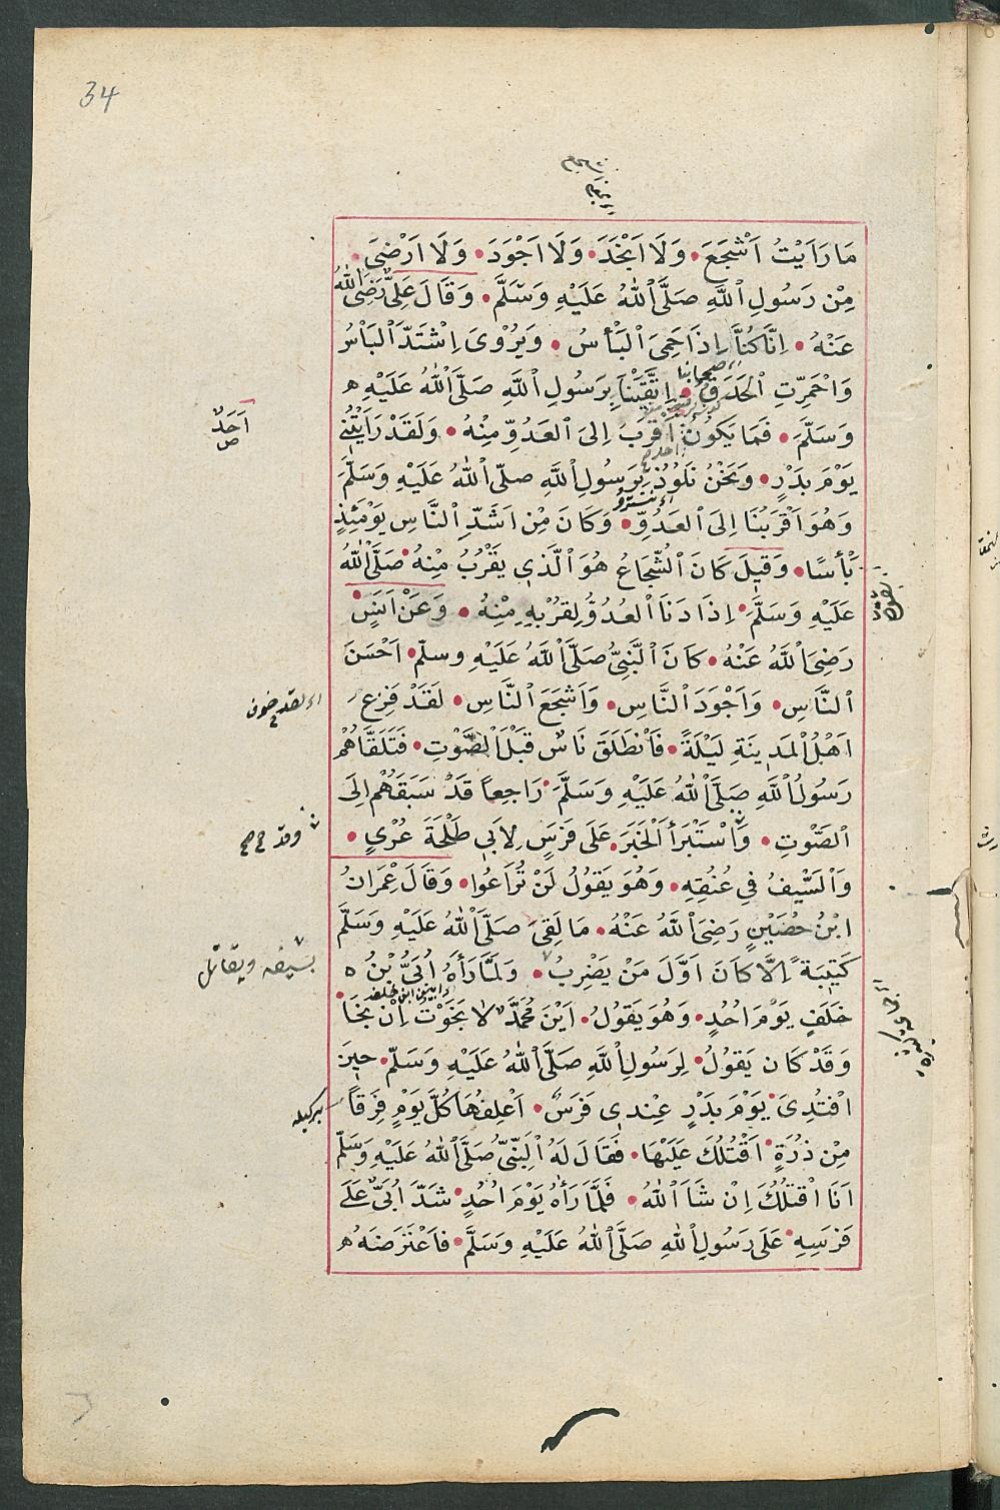 34
مَا رَاَيْتُ اَشْجَعَ وَلَا اَنْجَدَ وَلَا اَجْوَدَ وَلَا اَرْضٰى
مِنْ رَسُولِ اللّٰهِ صَلَّى اللّٰهُ عَلَيْهِ وَسَلَّمَ وَقَالَ عَلِىٌّ رَضِىَ اللّٰهُ
عَنْهُ اِنَّا كُنَّا اِذَا حَمِىَ الْبَأْسُ وَيُرْوٰى اِشْتَدَّ الْبَأْسُ
وَاحْمَرَّتِ الْحَدَقُ اِتَّقَيْنَا بِرَسُولِ اللّٰهِ صَلَّى اللّٰهُ عَلَيْهِ
وَسَلَّمَ فَمَا يَكُونُ اَقْرَبَ اِلَى الْعَدُوِّ مِنْهُ وَلَقَدْ رَاَيْتُنِى
اَحَدٌ
ص
يَوْمَ بَدْرٍ وَنَحْنُ نَلُوذُ بِرَسُولِ اللّٰهِ صَلَّى اللّٰهُ عَلَيْهِ وَسَلَّمَ
وَهُوَ اَقْرَبُنَا اِلَى الْعَدُوِّ وَكَانَ مِنْ اَشَدِّ النَّاسِ يَوْمَئِذٍ
بَأْسًا وَقِيلَ كَانَ الشُّجَاعُ هُوَ الَّذِى يَقْرُبُ مِنْهُ صَلَّى اللّٰهُ
عَلَيْهِ وَسَلَّمَ اِذَا دَنَا الْعَدُوُّ لِقُرْبِهِ مِنْهُ وَعَنْ اَنَسٍ
رَضِىَ اللّٰهُ عَنْهُ كَانَ النَّبِىُّ صَلَّى اللّٰهُ عَلَيْهِ وسلّم اَحْسَنَ
النَّاسِ وَاَجْوَدَ النَّاسِ وَاَشْجَعَ النَّاسِ لَقَدْ فَزِعَ
اَهْلُ الْمَدِينَةِ لَيْلَةً فَانْطَلَقَ نَاسٌ قِبَلَ الصَّوْتِ فَتَلَقَّاهُمْ
رَسُولُ اللّٰهِ صَلَّى اللّٰهُ عَلَيْهِ وَسَلَّمَ رَاجِعًا قَدْ سَبَقَهُمْ اِلَى
الصَّوْتِ وَاسْتَبْرَأَ الْخَبَرَ عَلٰى فَرَسٍ لِاَبِى طَلْحَةَ عُرْىٍ
وقد
وَالسَّيْفُ فِى عُنُقِهِ وَهُوَ يَقُولُ لَنْ تُرَاعُوا وَقَالَ عِمْرَانُ
ابْنُ حُصَيْنٍ رَضِىَ اللّٰهُ عَنْهُ مَا لَقِىَ صَلَّى اللّٰهُ عَلَيْهِ وَسَلَّمَ
كَتِيبَةً اِلَّا كَانَ اَوَّلَ مَنْ يَضْرِبُ وَلَمَّا رَأٰهُ اُبَىُّ بْنُ
بسيفه ويقاتل
خَلَفٍ يَوْمَ اُحُدٍ وَهُوَ يَقُولُ اَيْنَ مُحَمَّدٌ لَا نَجَوْتُ اِنْ نَجَا
وَقَدْ كَانَ يَقُولُ لِرَسُولِ اللّٰهِ صَلَّى اللّٰهُ عَلَيْهِ وَسَلَّمَ حِينَ
افْتُدِىَ يَوْمَ بَدْرٍ عِنْدِى فَرَسٌ اَعْلِفُهَا كُلَّ يَوْمٍ فِرَقًا
مِنْ ذُرَةٍ اَقْتُلُكَ عَلَيْهَا فَقَالَ لَهُ النَّبِىُّ صَلَّى اللّٰهُ عَلَيْهِ وَسَلَّمَ
اَنَا اَقْتُلُكَ اِنْ شَاءَ اللّٰهُ فَلَمَّا رَأٰهُ يَوْمَ اُحُدٍ شَدَّ اُبَىٌّ عَلٰى
فَرَسِهِ عَلٰى رَسُولِ اللّٰهِ صَلَّى اللّٰهُ عَلَيْهِ وَسَلَّمَ فَاعْتَرَضَهُ